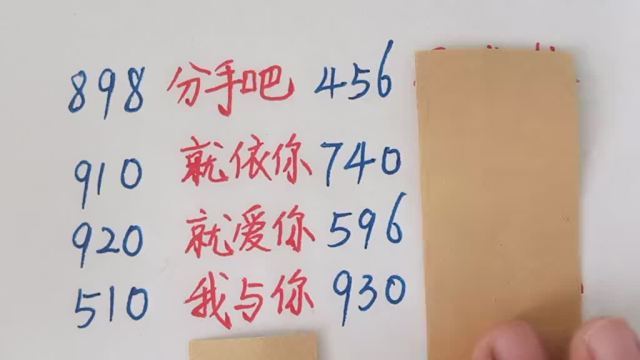 898 分手吧 456
910 就依你 740
920 就爱你 596
510 我与你 930